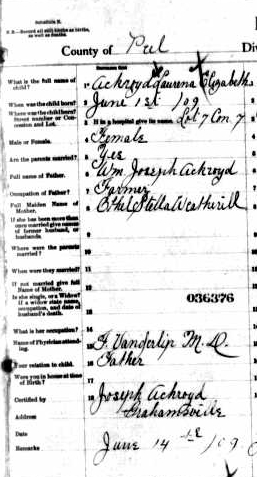 Schedule B.
N.B.—Record all still births as births, as well as deaths.
County of Peel Div
Surname first
What is the full name of child? 1 Ackroyd Laurena Elizabeth
When was the child born? 2 June 1st /09
Where was the child born? Street number or Concession and Lot. 3 If in a hospital give its name. Lot 7 Con. 7
Male or Female. 4 Female
Are the parents married? 5 Yes
Full name of Father. 6 Wm Joseph Ackroyd
Occupation of Father? 7 Farmer
Full Maiden Name of Mother. 8 Ethel Stella Weatherill
If she has been more than once married give names of former husband, or husbands. 9
Where were the parents married? 10
When were they married? 11
If not married give full Name of Mother. 12
Is she single, or a Widow? If a widow state name, occupation, and date of husband's death. 13
036376
What is her occupation? 14
Name of Physician attending. 15 F. Vanderlip M. D.
Your relation to child. 16 Father
Were you in house at time of Birth? 17
Certified by 18 Joseph Ackroyd
Address Grahamsville
Date June 14 /09
Remarks